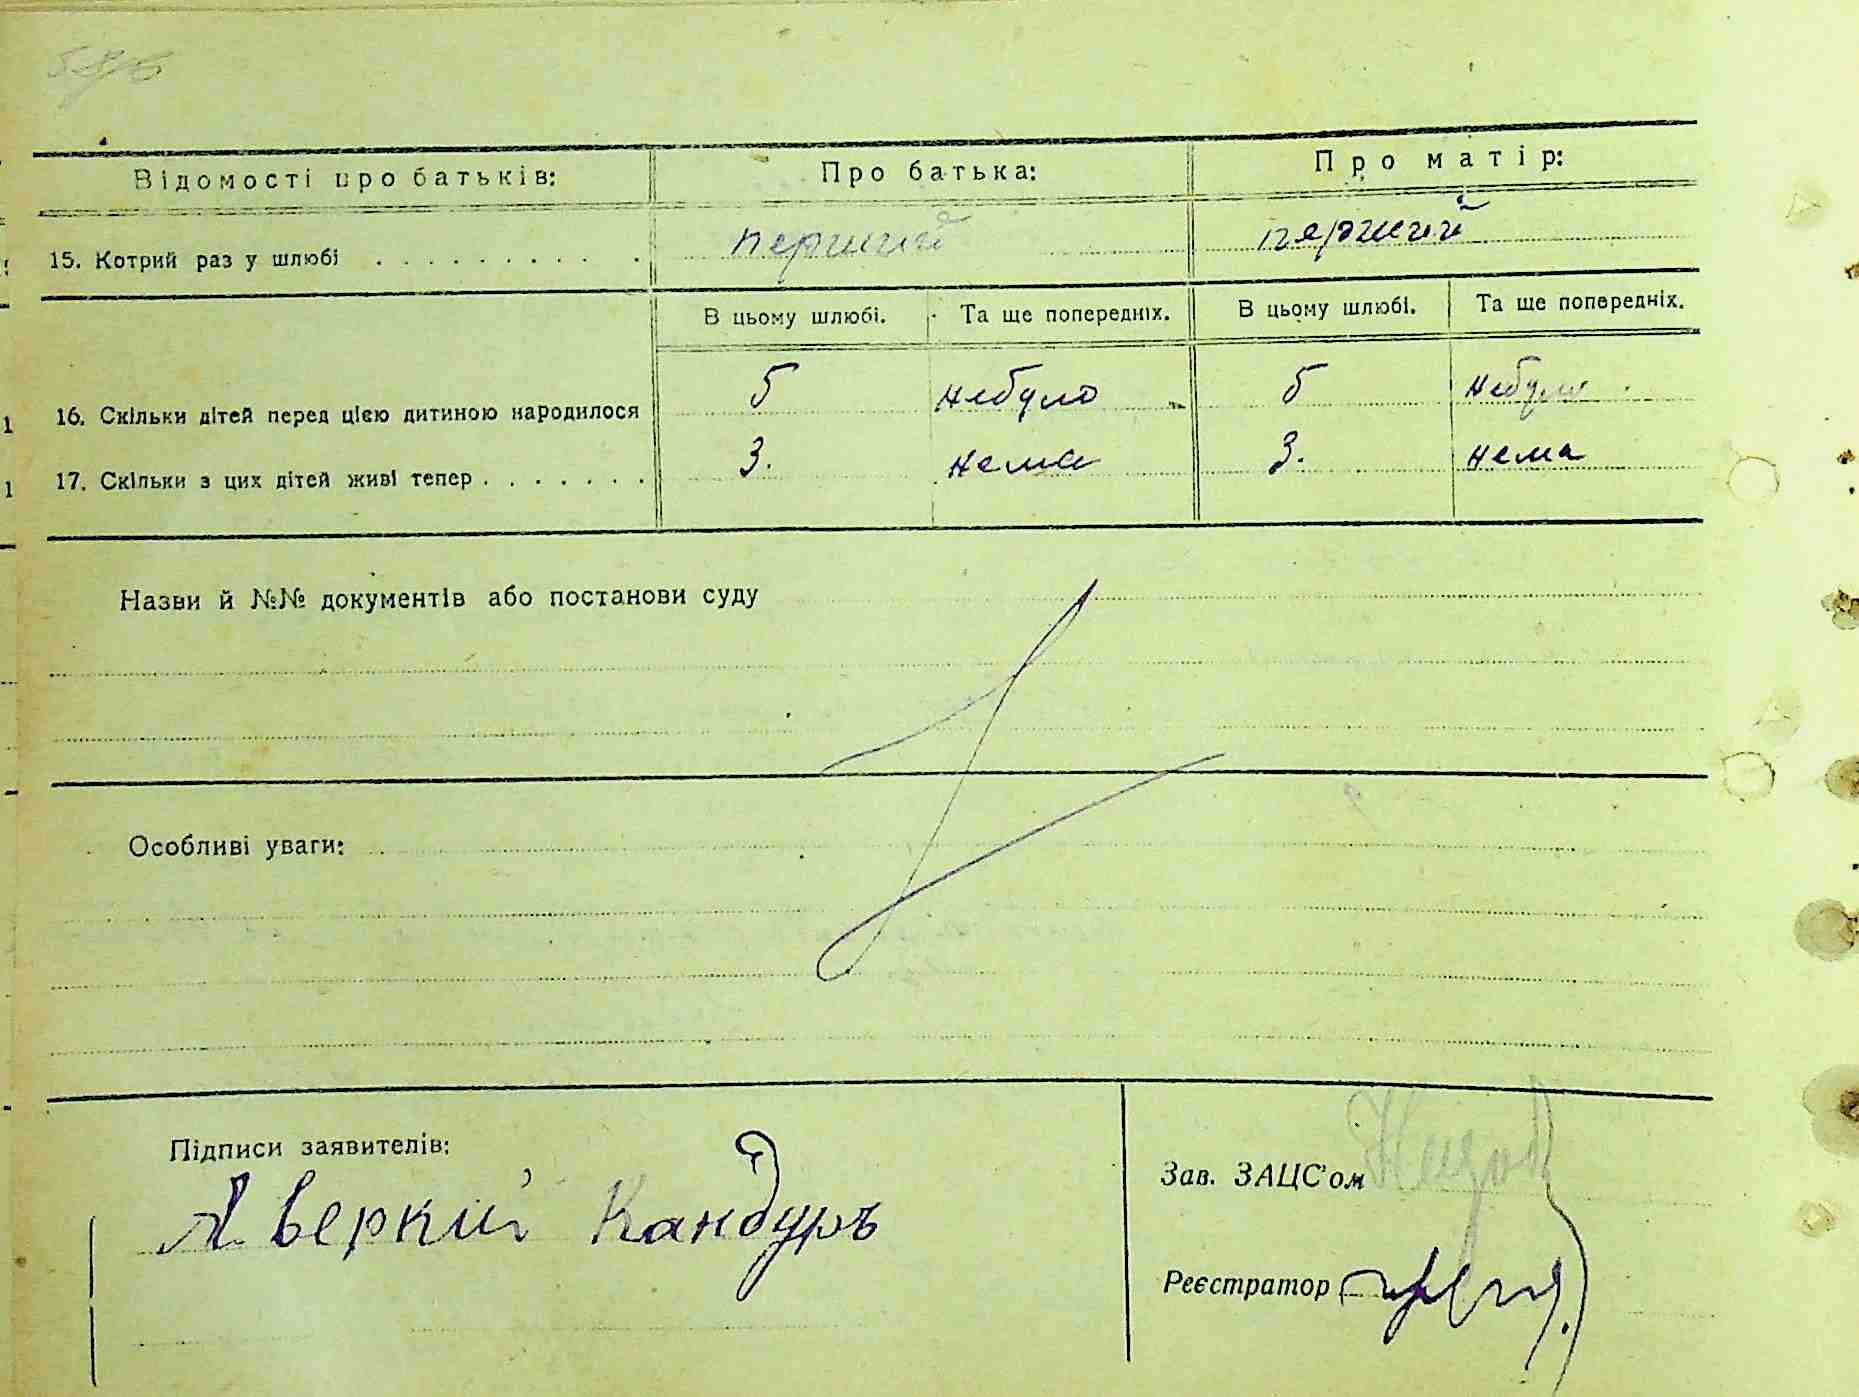 Відомості про батьків: Про батька: Про матір:
15. Котрий раз у шлюбі . . . . . . . . . . перший перший
В цьому шлюбі. Та ще попередніх. В цьому шлюбі. Та ще попередніх.
16. Скільки дітей перед цією дитиною народилося 5 небуло 5 небуло
17. Скільки з цих дітей живі тепер . . . . . . . 3. нема 3. нема
Назви й №№ документів або постанови суду
Особливі уваги:
Підписи заявителів:
Аверкий Кандуръ
Зав. ЗАЦС'ом
Реєстратор